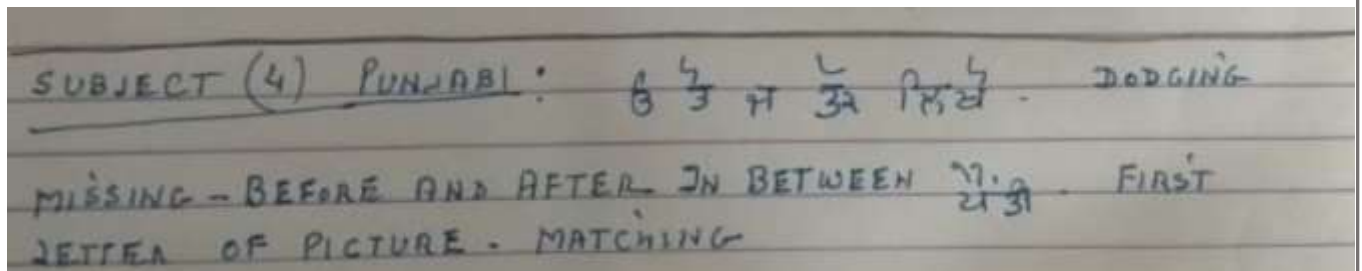 SUBJECT (4) PUNJABI: ੳ ਤੋਂ ਜ ਤੱਕ ਲਿਖੋ. DODGING
MISSING - BEFORE AND AFTER IN BETWEEN ਪੈਂਤੀ. FIRST
LETTER OF PICTURE. MATCHING